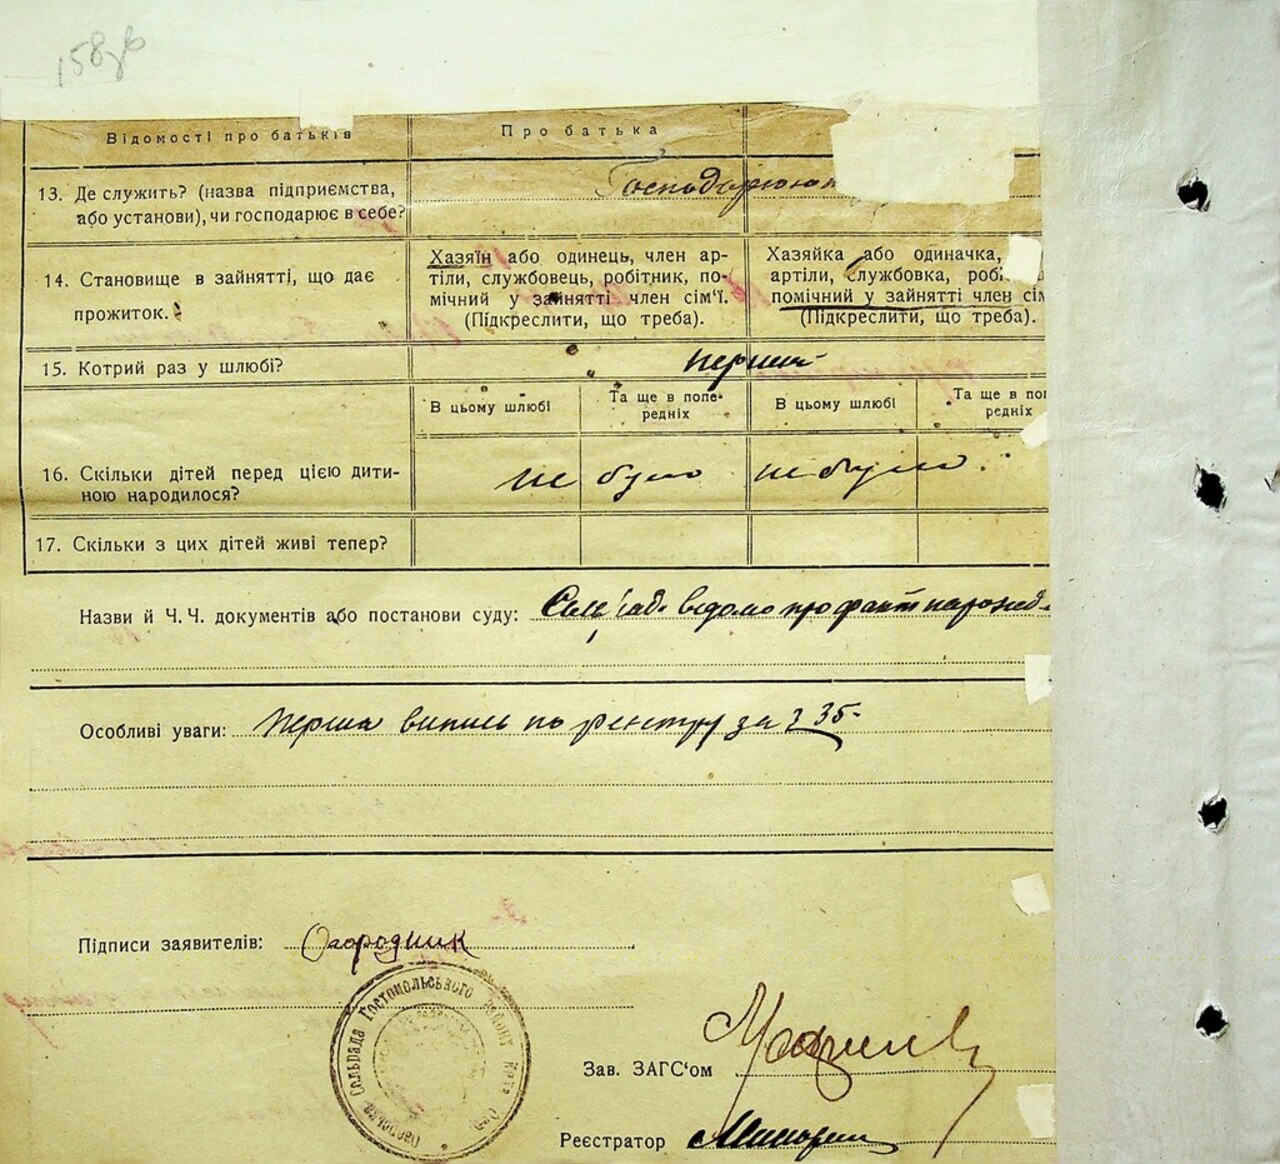 158зв
Відомості про батьків
Про батька
13. Де служить? (назва підприємства,
або установи), чи господарює в себе?
Господарюют
14. Становище в зайнятті, що дає
прожиток.
Хазяїн або одинець, член ар-
тіли, службовець, робітник, по-
мічний у зайнятті член сім'ї.
(Підкреслити, що треба).
Хазяйка або одиначка,
артіли, службовка, робі
помічний у зайнятті член сім
(Підкреслити, що треба).
15. Котрий раз у шлюбі?
перший
В цьому шлюбі
Та ще в попе-
редніх
В цьому шлюбі
Та ще в поп
редніх
16. Скільки дітей перед цією дити-
ною народилося?
не було
не було
17. Скільки з цих дітей живі тепер?
Назви й Ч. Ч. документів або постанови суду: відомо про факт народж
Особливі уваги: Перша випись по реєстру за № 35
Підписи заявителів: Огородник
Сельрада Гостомольського району
Зав. ЗАГС'ом
Реєстратор